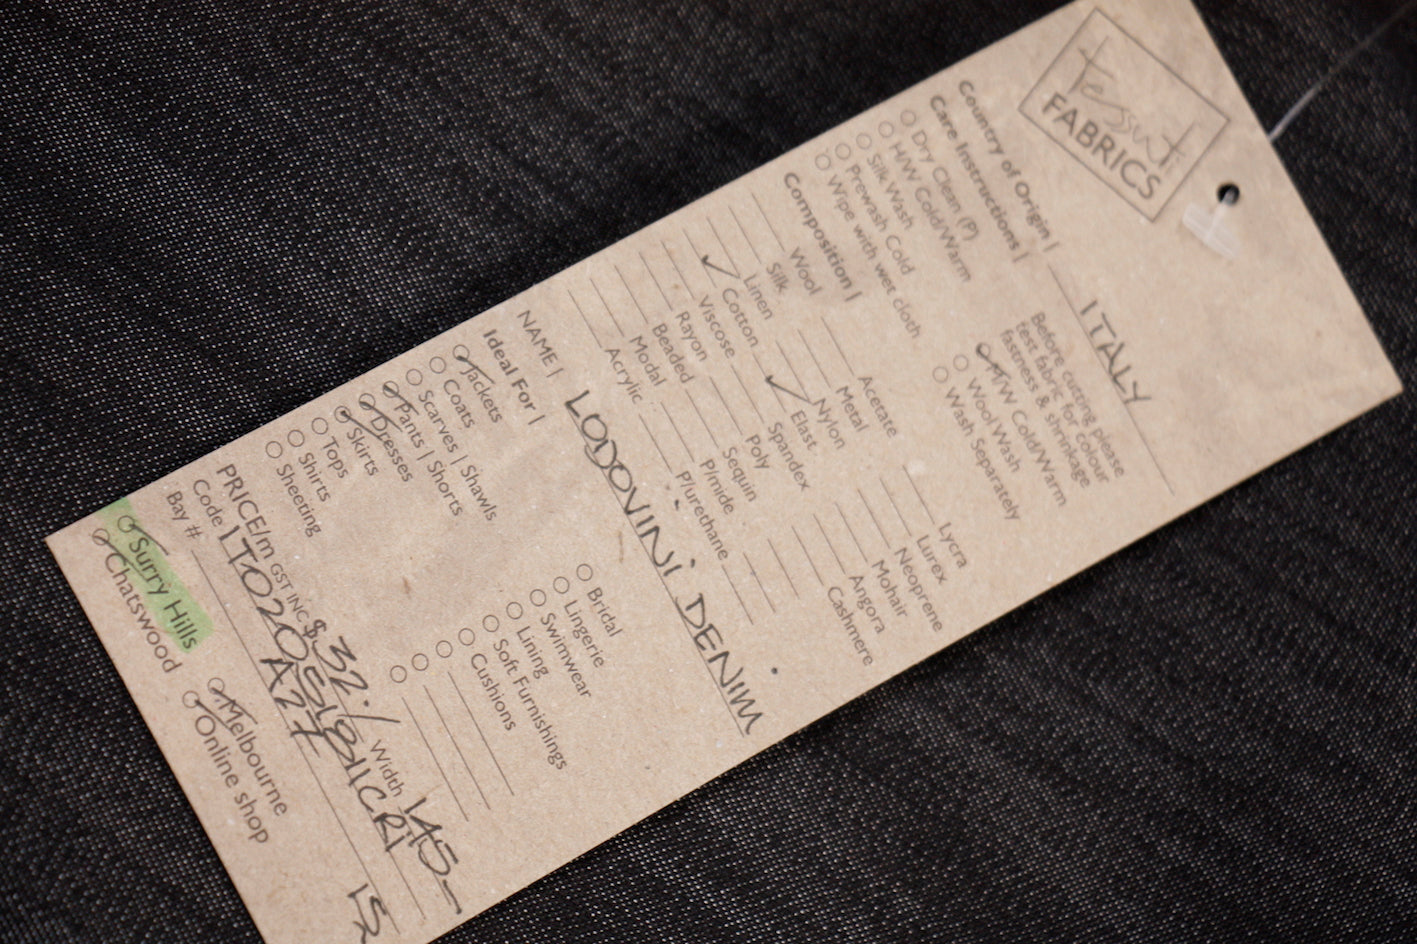 tessuti
FABRICS
Country of Origin | ITALY
Care Instructions |
Dry Clean (P)
H/W Cold/Warm
Silk Wash
Prewash Cold
Wipe with wet cloth
Before cutting please
test fabric for colour
fastness & shrinkage
H/W Cold/Warm
Wool Wash
Wash Separately
Composition |
Wool
Silk
Linen
Cotton
Viscose
Rayon
Beaded
Modal
Acrylic
Acetate
Metal
Nylon
Elast
Spandex
Poly
Sequin
P/mide
P/urethane
Lycra
Lurex
Neoprene
Mohair
Angora
Cashmere
NAME | LODOVINI DENIM
Ideal For |
Jackets
Coats
Scarves | Shawls
Pants | Shorts
Dresses
Skirts
Tops
Shirts
Sheeting
Bridal
Lingerie
Swimwear
Lining
Soft Furnishings
Cushions
PRICE/m GST INC $32./ Width 145-
Code
Bay # A27
Surry Hills
Chatswood
Melbourne
Online shop